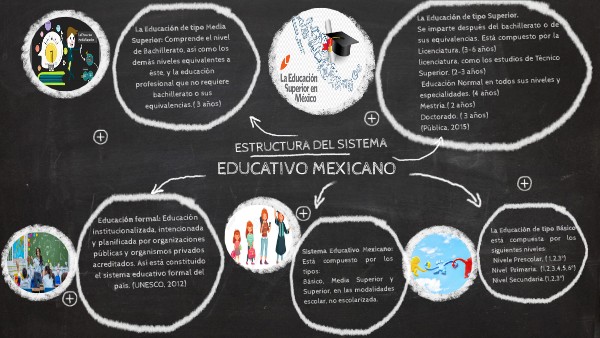 La Educación de tipo Media
Superior: Comprende el nivel
de Bachillerato, así como los
demás niveles equivalentes a
éste, y la educación
profesional que no requiere
bachillerato o sus
equivalencias.( 3 años)
La Educación
Superior en
México
La Educación de tipo Superior.
Se imparte después del bachillerato o de
sus equivalencias. Está compuesto por la
Licenciatura. (3-6 años)
licenciatura, como los estudios de Técnico
Superior. (2-3 años)
Educación Normal en todos sus niveles y
especialidades. (4 años)
Mestría.( 2 años)
Doctorado. ( 3 años)
(Pública, 2015)
ESTRUCTURA DEL SISTEMA
EDUCATIVO MEXICANO
Educación formal: Educación
institucionalizada, intencionada
y planificada por organizaciones
públicas y organismos privados
acreditados. Así está constituido
el sistema educativo formal del
país. (UNESCO, 2012)
Sistema Educativo Mexicano:
Está compuesto por los
tipos:
Básico, Media Superior y
Superior, en las modalidades
escolar, no escolarizada.
La Educación de tipo Básico
está compuesta por los
siguientes niveles:
Nivele Prescolar. ( 1,2,3°)
Nivel Primaria. (1,2,3,4,5,6°)
Nivel Secundaria.(1,2,3°)